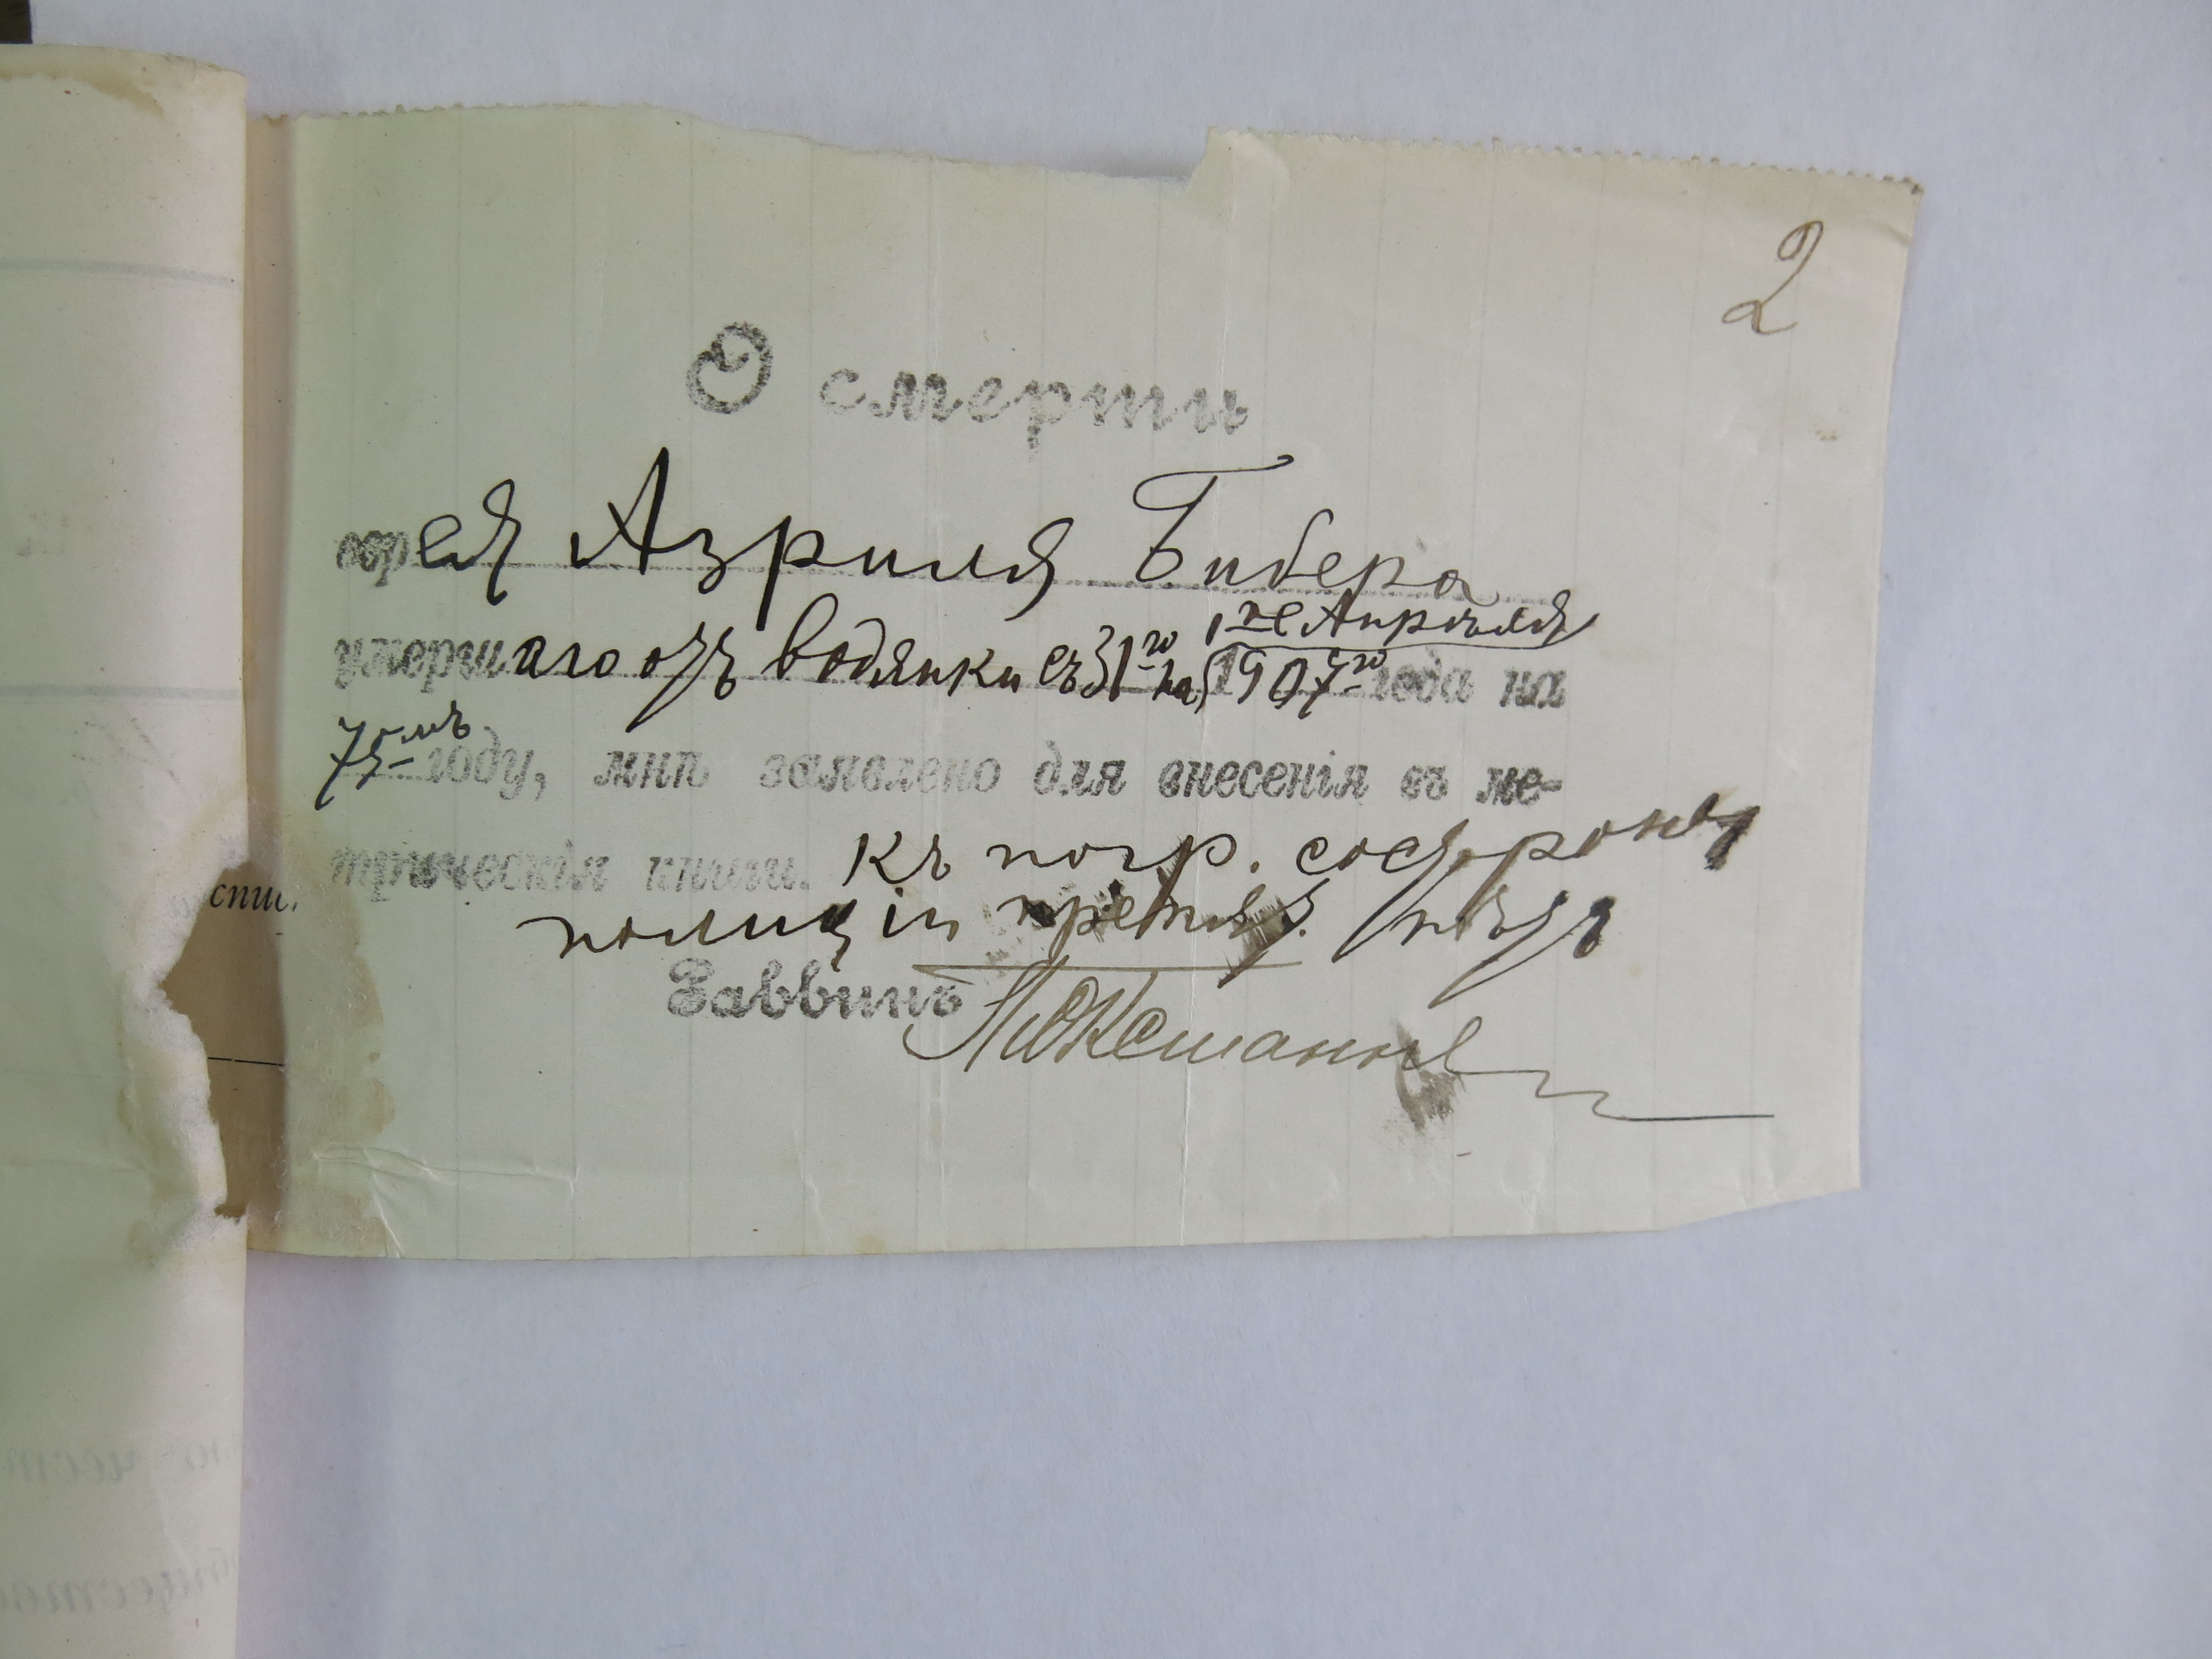 2
О смерти
еврея Азриля Бибера
умершаго отъ водянки съ 31го на 1ое Апрѣля
1907го года на
75мъ году, мнѣ заявлено для внесенія въ ме-
трическія книги. Къ погр. со стороны
полиціи препятс. нѣтъ
Раввинъ
спис.